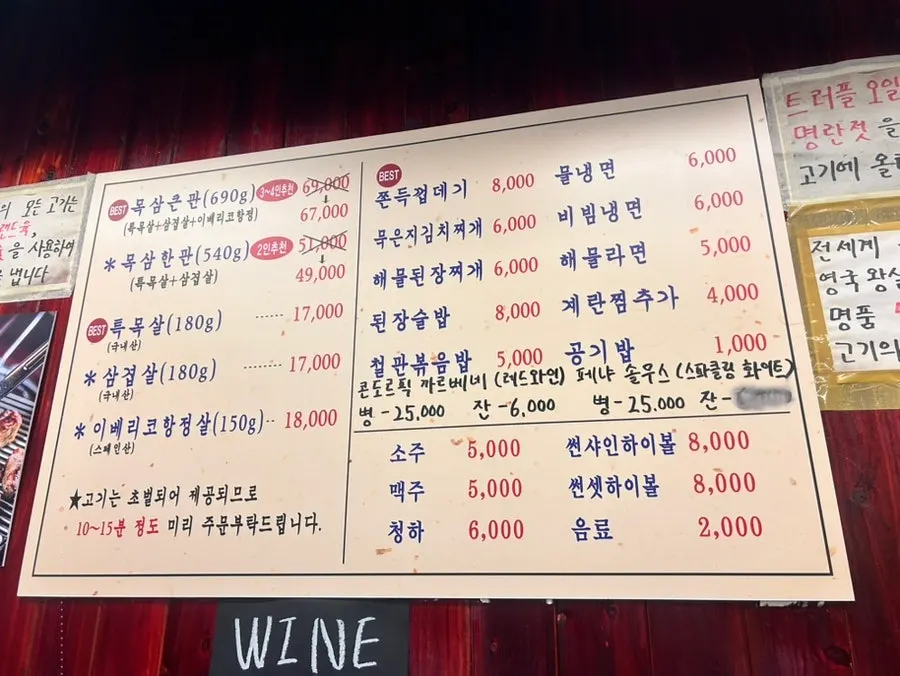 모든 고기는
을 사용하여
냅니다
BEST 목삼큰판(690g) 3~4인추천 69,000
(특목살+삼겹살+이베리코항정) 67,000
* 목삼한판(540g) 2인추천 51,000
(특목살+삼겹살) 49,000
BEST 특목살(180g) ------ 17,000
(국내산)
* 삼겹살(180g) -------- 17,000
(국내산)
* 이베리코항정살(150g)-- 18,000
(스페인산)
★고기는 초벌되어 제공되므로
10~15분 정도 미리 주문부탁드립니다.
BEST
쫀득껍데기 8,000
묵은지김치찌개 6,000
해물된장찌개 6,000
된장술밥 8,000
철판볶음밥 5,000
물냉면 6,000
비빔냉면 6,000
해물라면 5,000
계란찜추가 4,000
공기밥 1,000
콘도르픽 까르베네 (레드와인) 페냐 솔우스 (스파클링 화이트)
병 - 25,000 잔 - 6,000 병 - 25,000 잔 -
소주 5,000
맥주 5,000
청하 6,000
썬샤인하이볼 8,000
썬셋하이볼 8,000
음료 2,000
트러플 오일
명란젓을
고기에 올
전세계
영국 왕실
명품
고기의
WINE